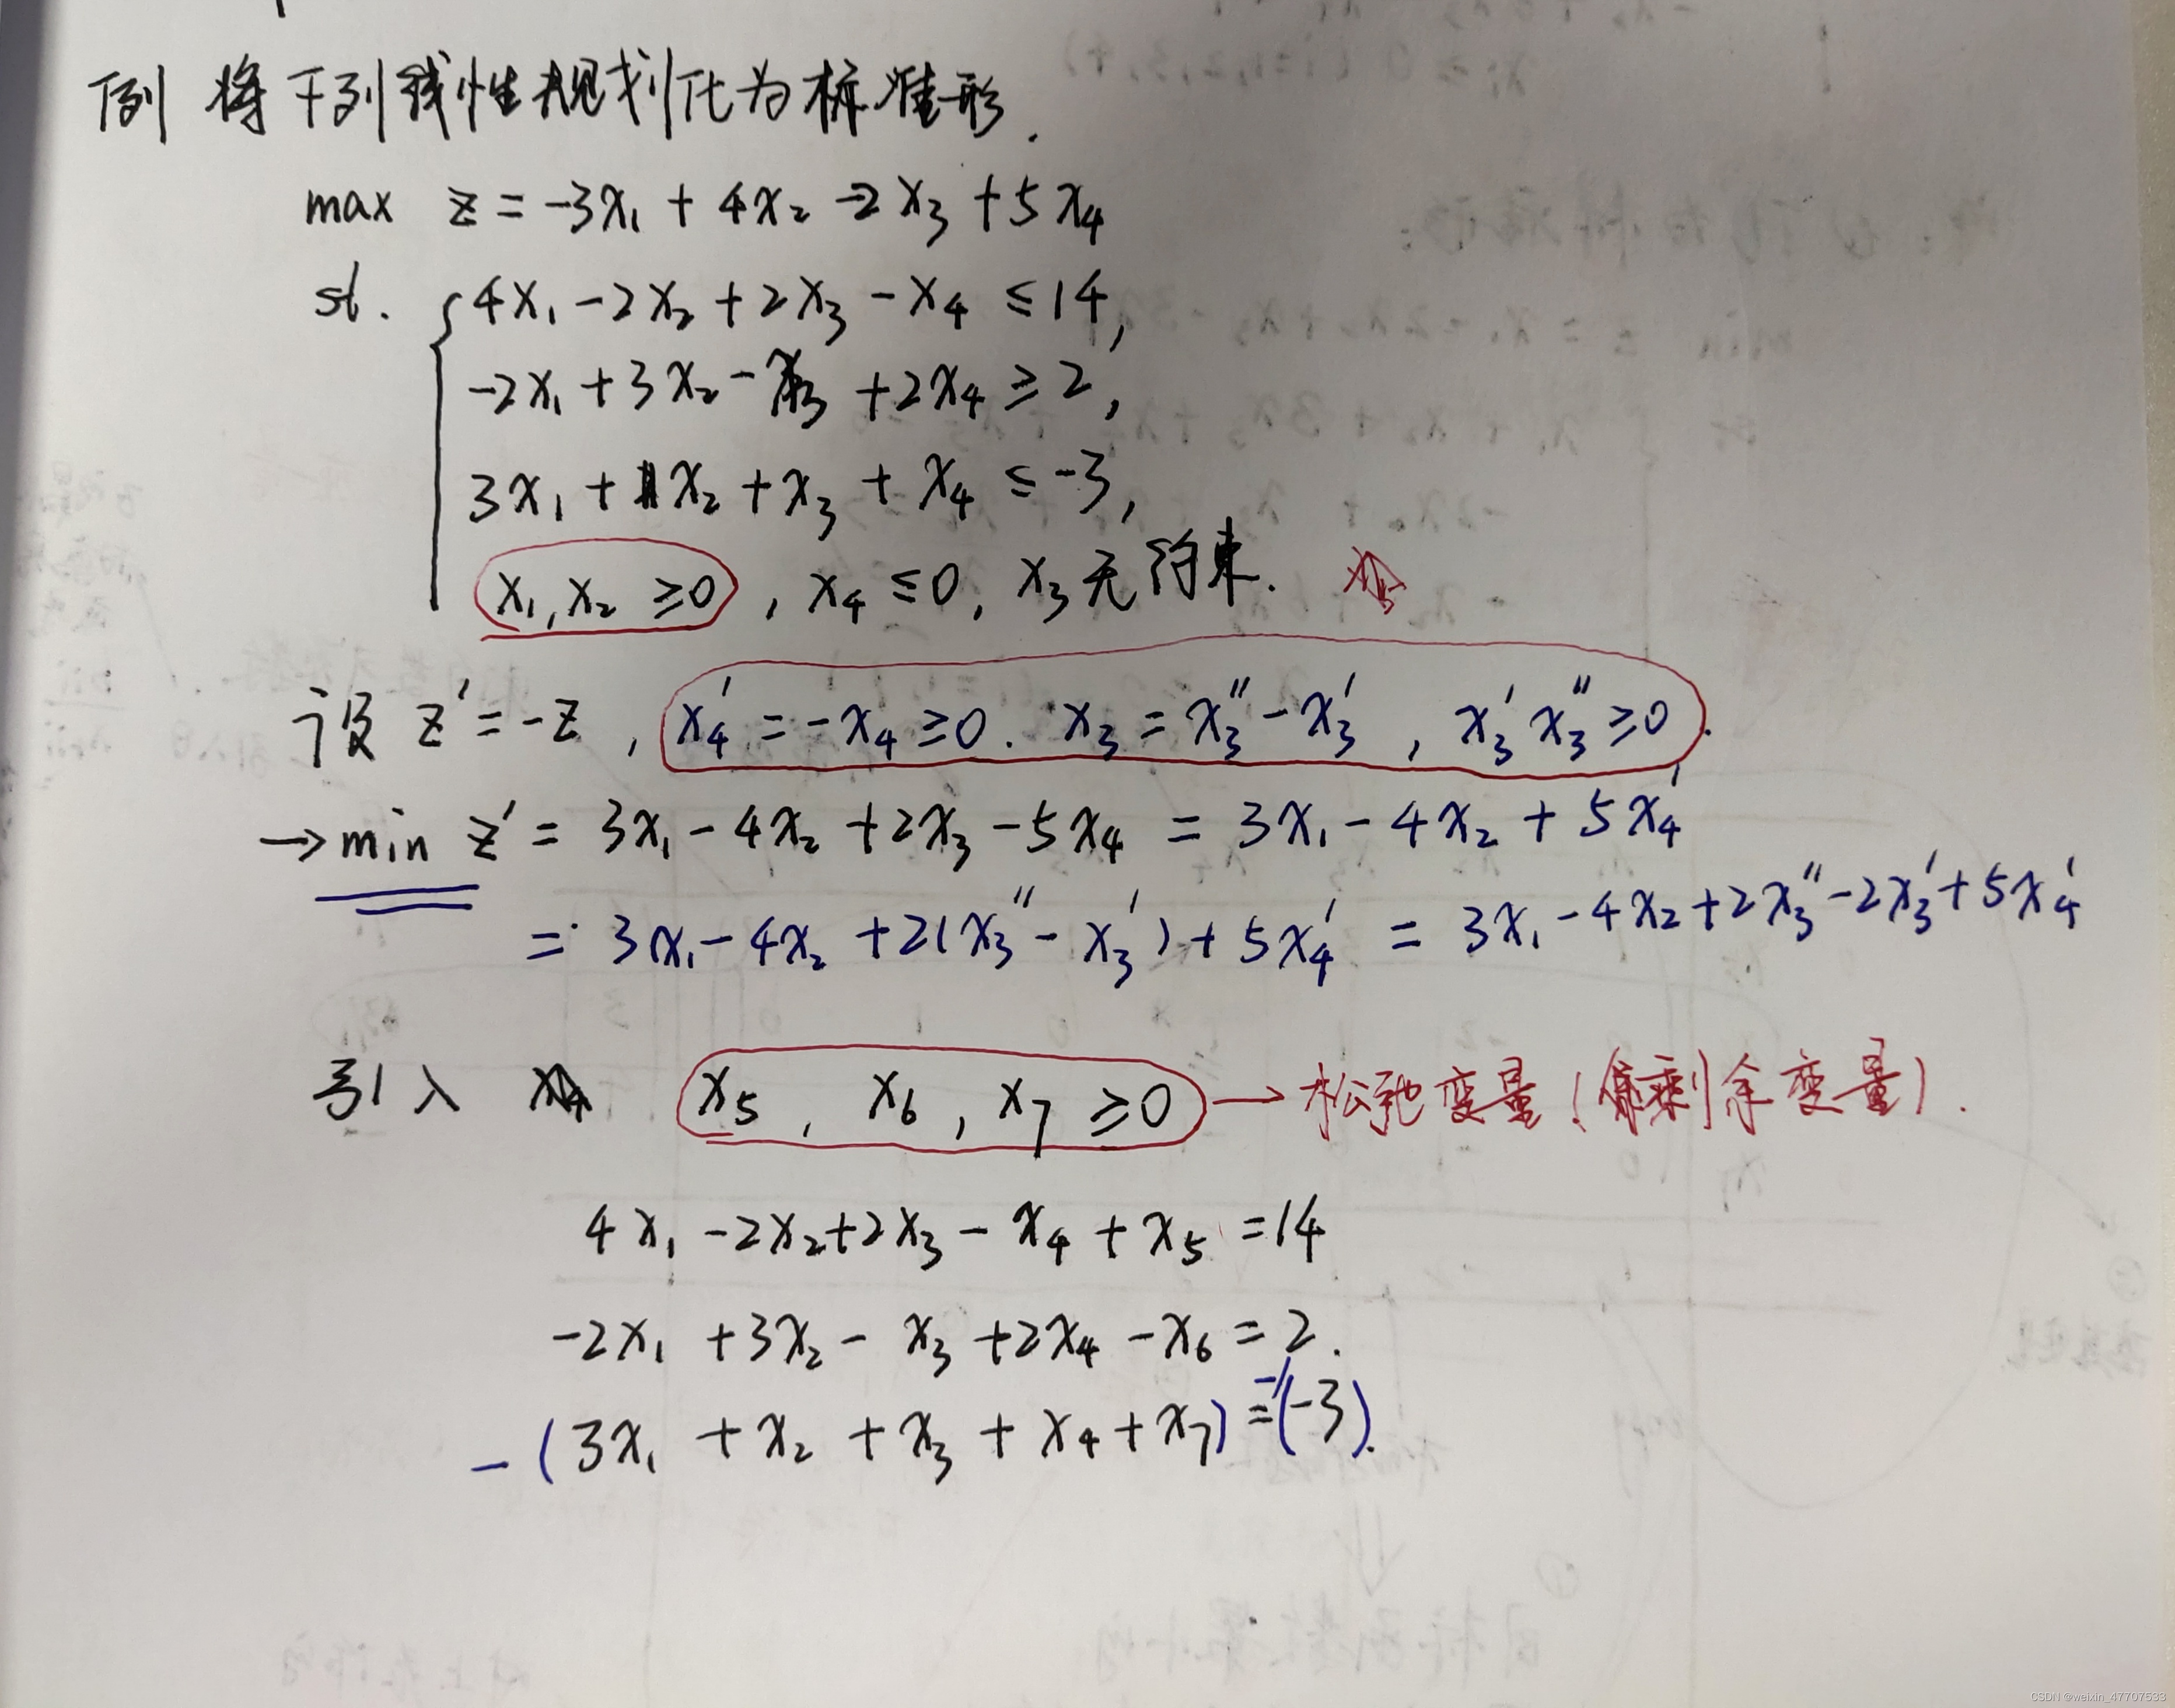 例 将下列线性规划化为标准形.
max z = -3x₁ + 4x₂ -2x₃ + 5x₄
st. { 4x₁ - 2x₂ + 2x₃ - x₄ ≤ 14,
-2x₁ + 3x₂ - x₃ + 2x₄ ≥ 2,
3x₁ + x₂ + x₃ + x₄ ≤ -3,
x₁, x₂ ≥ 0, x₄ ≤ 0, x₃ 无约束.
设 z' = -z, x₄' = -x₄ ≥ 0. x₃ = x₃'' - x₃', x₃' x₃'' ≥ 0.
→ min z' = 3x₁ - 4x₂ + 2x₃ - 5x₄ = 3x₁ - 4x₂ + 5x₄'
= 3x₁ - 4x₂ + 2(x₃'' - x₃') + 5x₄' = 3x₁ - 4x₂ + 2x₃'' - 2x₃' + 5x₄'
引入 x₅, x₆, x₇ ≥ 0 → 松弛变量(剩余变量).
4x₁ - 2x₂ + 2x₃ - x₄ + x₅ = 14
-2x₁ + 3x₂ - x₃ + 2x₄ - x₆ = 2.
-(3x₁ + x₂ + x₃ + x₄ + x₇) = -(-3).
CSDN @weixin_47707533